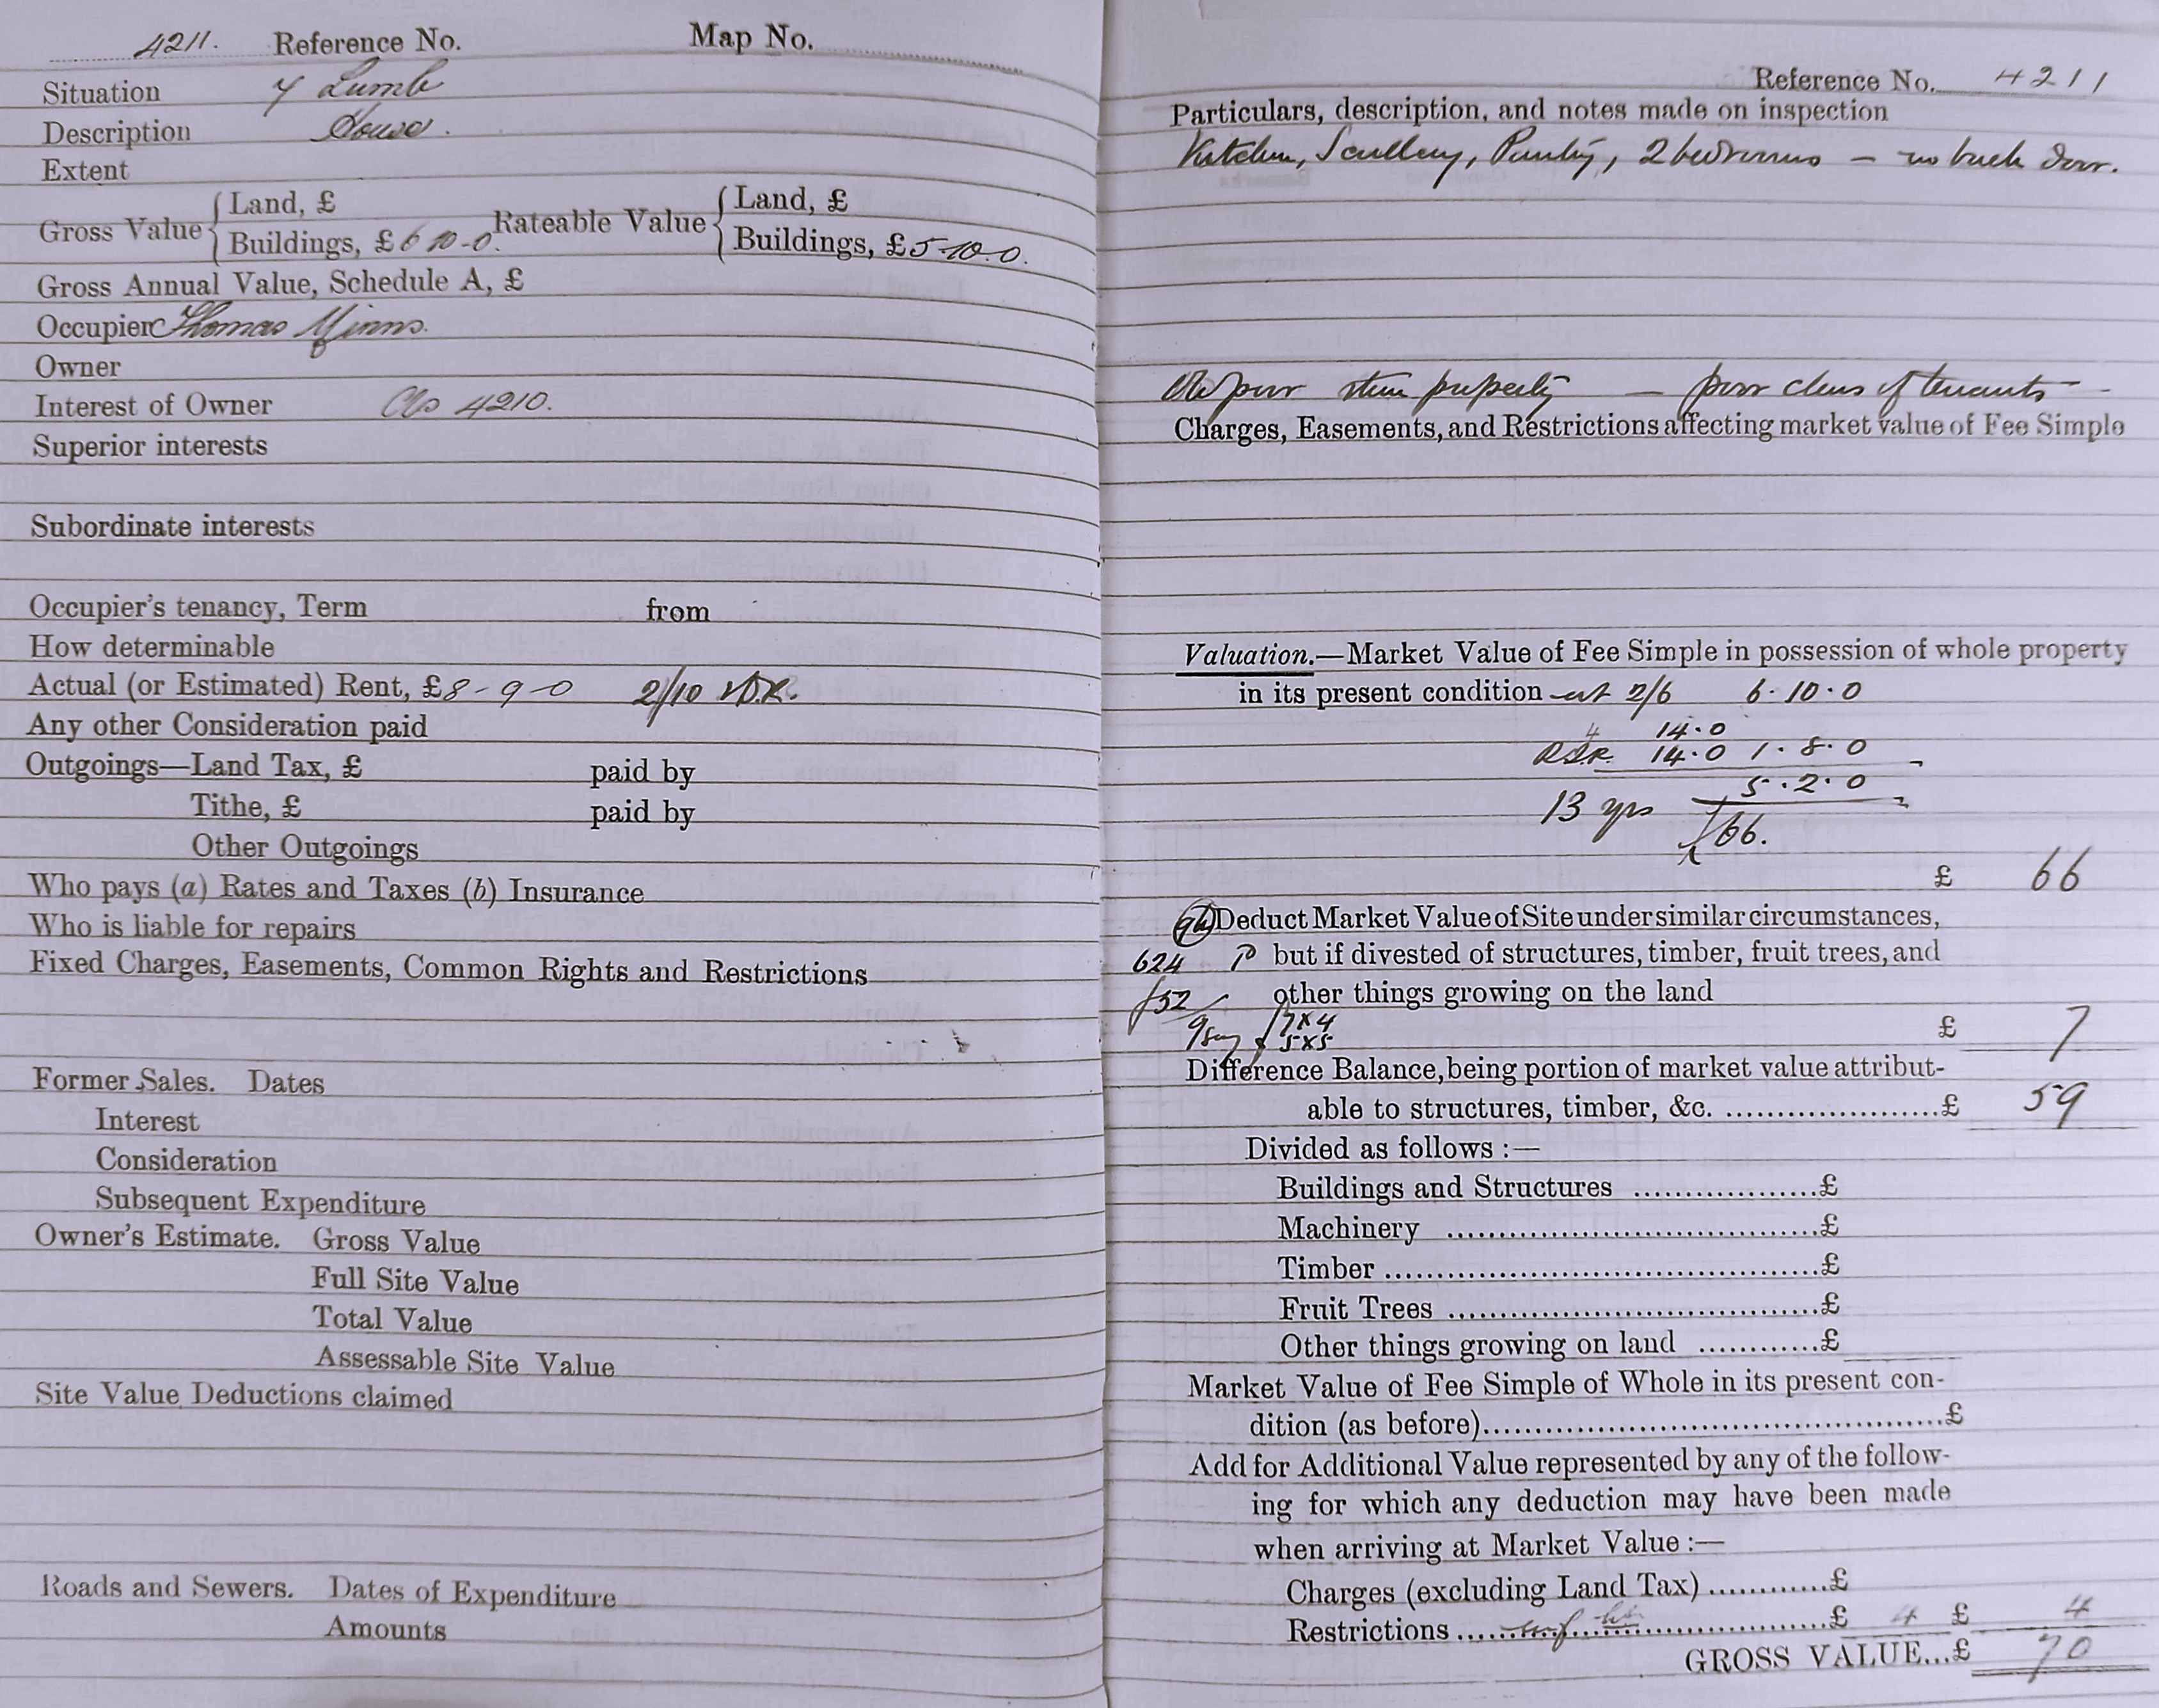 4211. Reference No. Map No.
Situation 7 Lumb
Description House.
Extent
Gross Value { Land, £
Buildings, £6 10-0. Rateable Value { Land, £
Buildings, £5-10-0.
Gross Annual Value, Schedule A, £
Occupier Thomas Minns.
Owner
Interest of Owner As 4210.
Superior interests
Subordinate interests
Occupier's tenancy, Term from
How determinable
Actual (or Estimated) Rent, £8-9-0 2/10
Any other Consideration paid
Outgoings—Land Tax, £ paid by
Tithe, £ paid by
Other Outgoings
Who pays (a) Rates and Taxes (b) Insurance
Who is liable for repairs
Fixed Charges, Easements, Common Rights and Restrictions
Former Sales. Dates
Interest
Consideration
Subsequent Expenditure
Owner's Estimate. Gross Value
Full Site Value
Total Value
Assessable Site Value
Site Value Deductions claimed
Roads and Sewers. Dates of Expenditure
Amounts
Reference No. 4211
Particulars, description, and notes made on inspection
Kitchen, Scullery, Pantry, 2 bedrooms — no back door.
Old poor stone property — poor class of tenants —
Charges, Easements, and Restrictions affecting market value of Fee Simple
Valuation.—Market Value of Fee Simple in possession of whole property
in its present condition at 2/6 6·10·0
4 14·0
14·0 1·8·0
5·2·0
13 yrs £66.
£ 66
Deduct Market Value of Site under similar circumstances,
624 but if divested of structures, timber, fruit trees, and
£52 other things growing on the land
17x4
5x5 £ 7
Difference Balance, being portion of market value attribut-
able to structures, timber, &c. ......................£ 59
Divided as follows :—
Buildings and Structures ...................£
Machinery ......................................£
Timber ............................................£
Fruit Trees ......................................£
Other things growing on land ............£
Market Value of Fee Simple of Whole in its present con-
dition (as before)...............................................£
Add for Additional Value represented by any of the follow-
ing for which any deduction may have been made
when arriving at Market Value :—
Charges (excluding Land Tax) ............£
Restrictions ......................................£ 4 £ 4
GROSS VALUE...£ 70